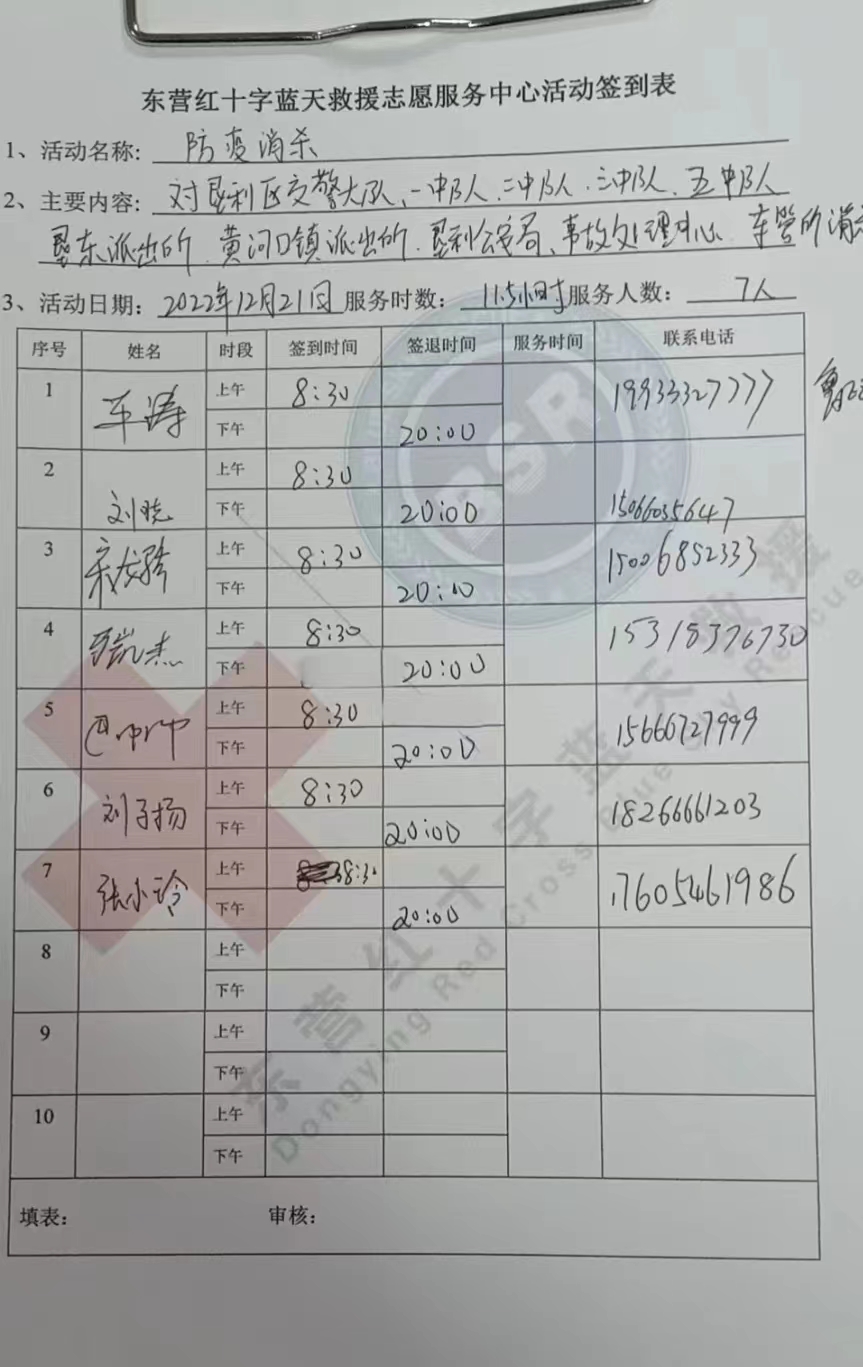 东营红十字蓝天救援志愿服务中心活动签到表
1、活动名称: 防疫消杀
2、主要内容: 对垦利区交警大队、一中队、二中队、三中队、五中队
垦东派出所、黄河口镇派出所、垦利公安局、事故处理中心、车管所消
3、活动日期: 2022年12月21日 服务时数: 11.5小时 服务人数: 7人
序号 姓名 时段 签到时间 签退时间 服务时间 联系电话
1 上午 8:30 19933327777
下午 20:00
2 刘晓 上午 8:30
下午 20:00 15066035647
3 上午 8:30 15006852333
下午 20:10
4 上午 8:30 15318376730
下午 20:00
5 上午 8:30 15666727999
下午 20:00
6 刘子扬 上午 8:30 18266661203
下午 20:00
7 张小玲 上午 8:30 17605461986
下午 20:00
8 上午
下午
9 上午
下午
10 上午
下午
填表: 审核:
BSR
东营红十字蓝天救援
Dongying Red Cross Blue Sky Rescue